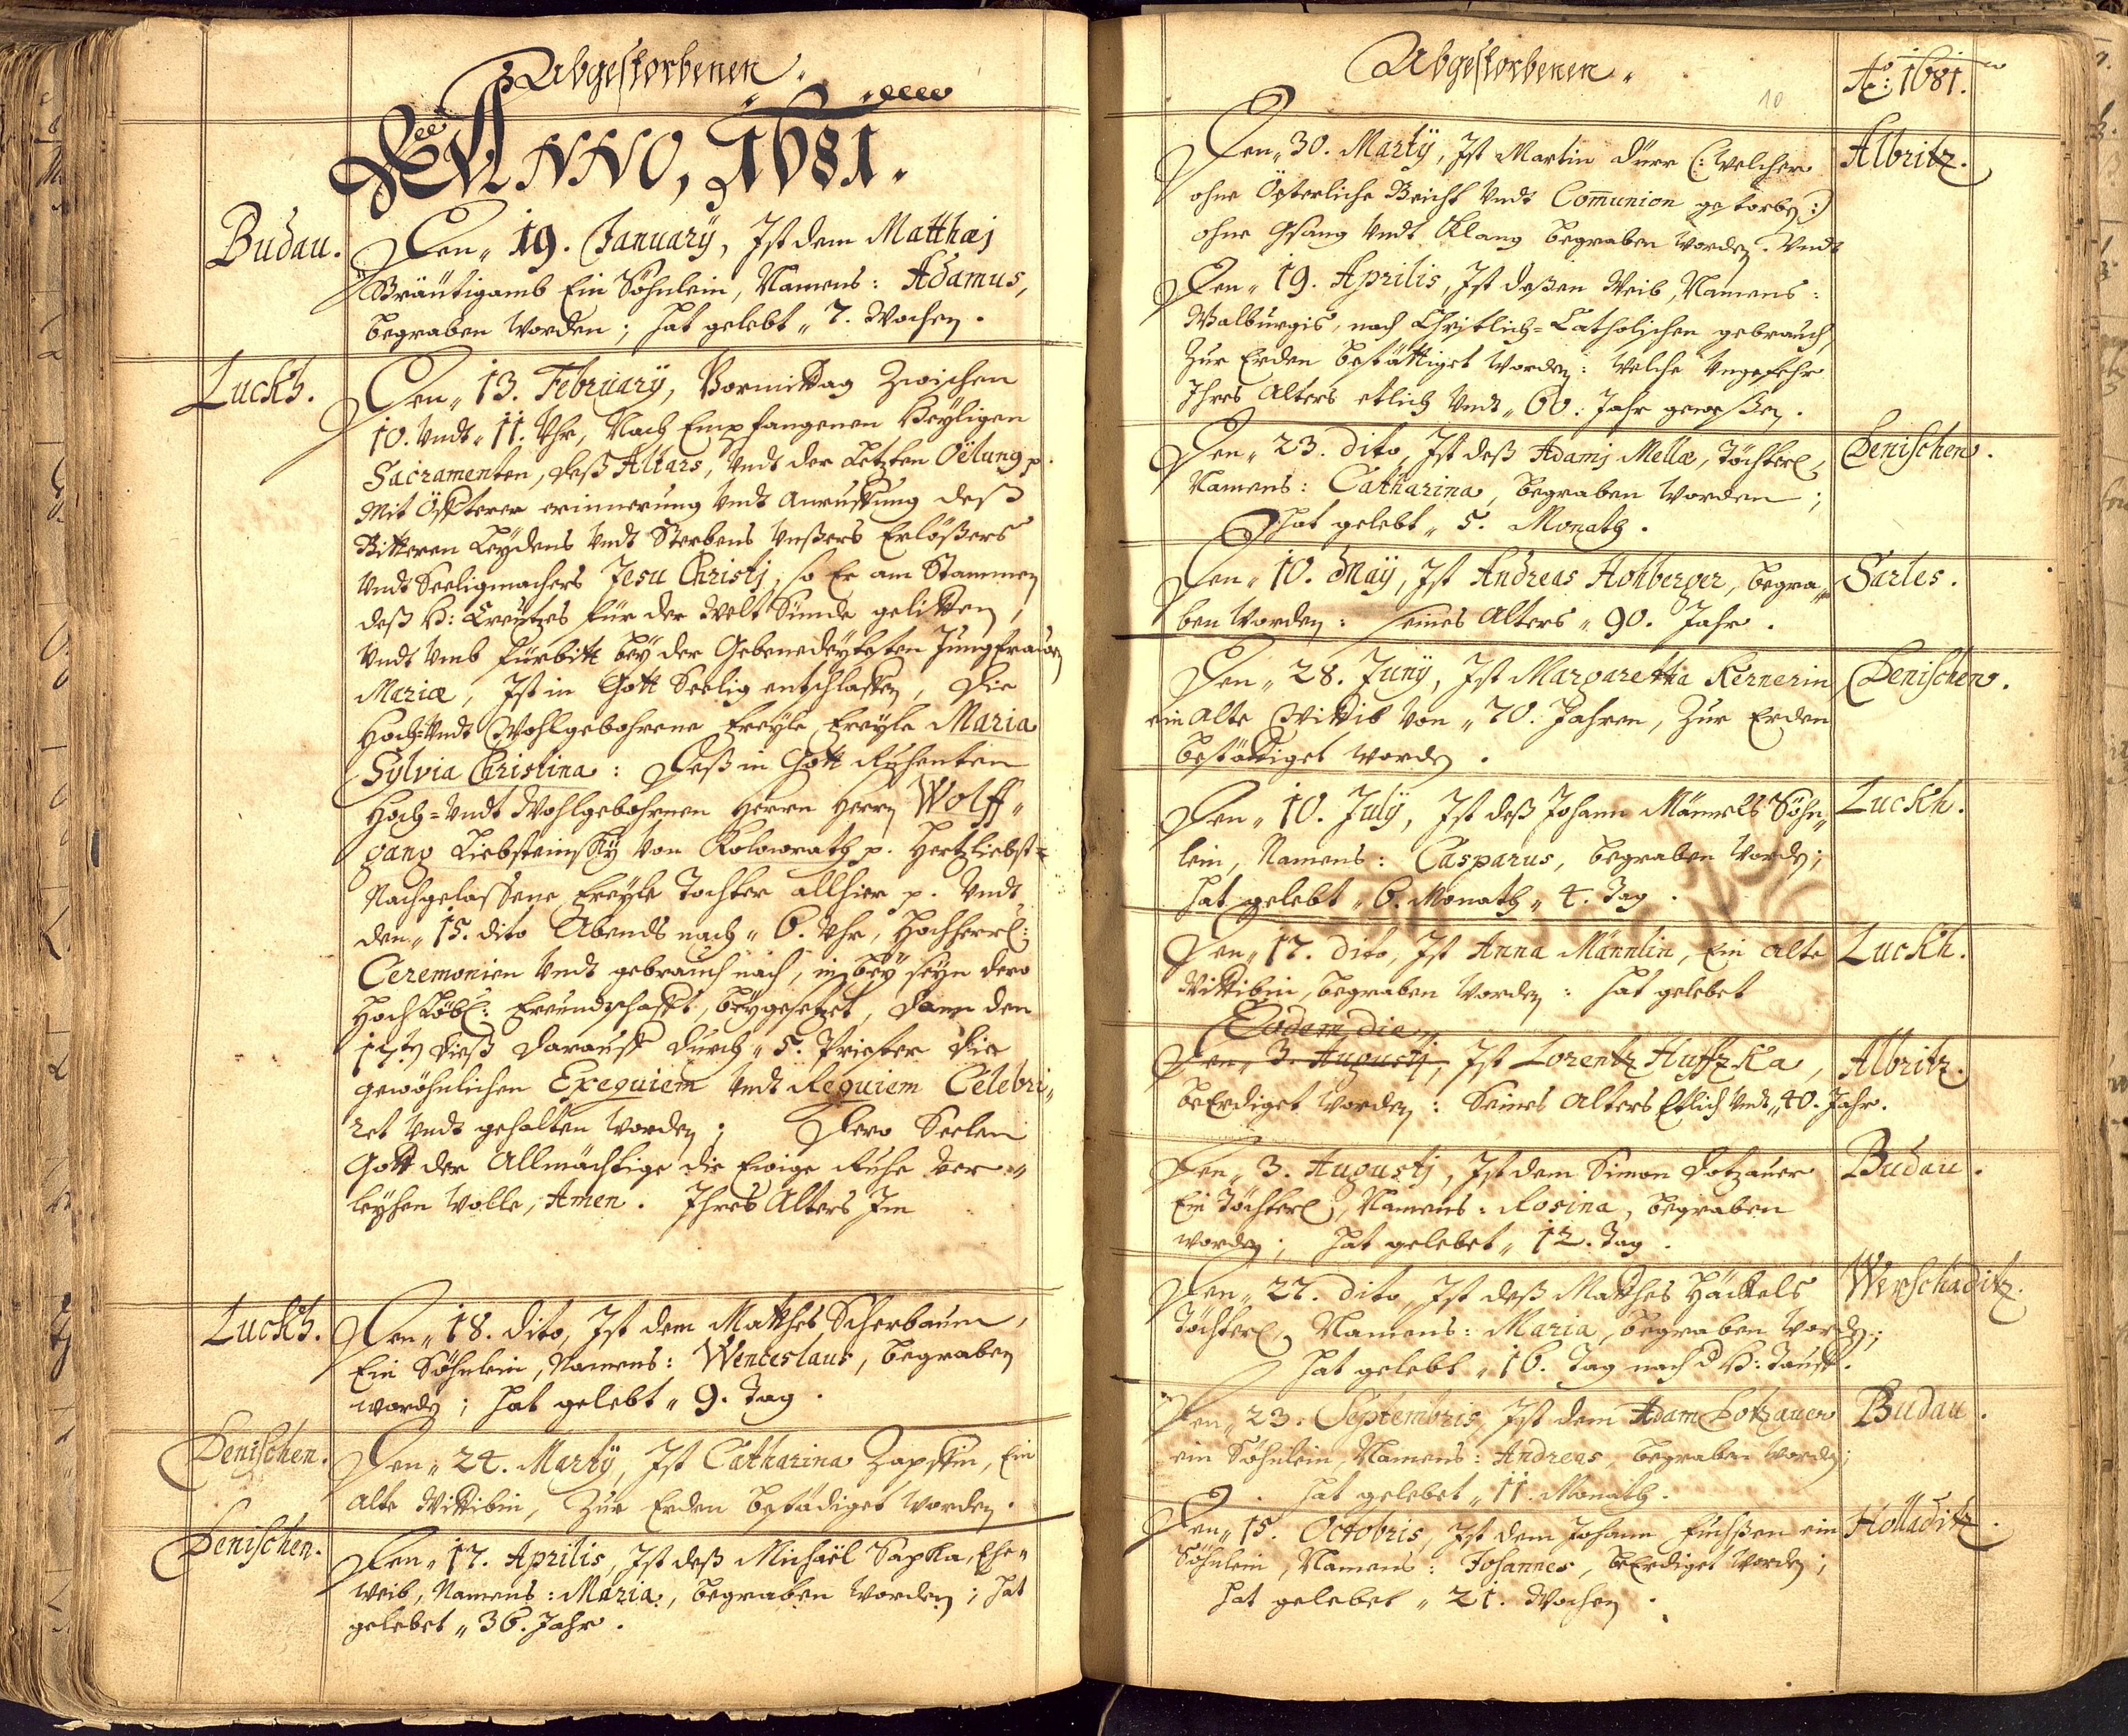 Abgestorbenen.
ANNO, 1681.
Budau.
Den„ 19. January, Ist dem Matthæj
Bräutigamb Ein Söhnlein, Namens: Adamus,
begraben worden; hat gelebt„ 7. Wochen.
Luckh.
Den„ 13. February, Vormittag Zwischen
10. Vndt„ 11. Vhr, Nach Empfangenen Heyligen
Sacramenten, deß Altars, Vndt der Letzten Öelung p.
Mit Öffterer erinnerung Vndt Anruffung deß
Bitteren Leydens Vndt Sterbens Vnßers Erlößers
Vndt Seeligmachers Jesu Christj, so Er am Stammen
deß H: Creutzes für der Welt Sünde gelitten,
Vndt Vmb Fürbitt bey der Gebenedeytesten Jungfrauen
Mariæ, Ist in Gott Seelig entschlaffen, Die
Hoch= Vndt Wohlgebohrene Freyle Freyle Maria
Sylvia Christina: Deß in Gott Ruhenten
Hoch= Vndt Wohlgebohrnen Herrn Herrn Wolff„
gang Liebsteinsky Von Kolowrath p. Hertzliebst=
Nachgelassene Freyle Tochter allhier p. Vndt
den„ 15. dito Abends nach„ 6. Vhr, Hochherrl:
Ceremonien Vndt gebrauch nach, in beÿ seyn dero
Hochlöbl: Freundschafft, beygesetzet, Dann den
17ten dieß darauff durch„ 5. Priester die
gewöhnlichen Exequiem Vndt Requiem Celebri„
ret Vndt gehalten worden; Dero Seelen
Gott der Allmächtige die Ewige Ruhe ver„
leyhen wolle, Amen. Ihres Alters Im
Luckh.
Den„ 18. dito, Ist dem Matthes Scherbaum,
Ein Söhnlein, Namens: Wenceslaus, begraben
worden; hat gelebt„ 9. Tag.
Denischen.
Den„ 24. Marty, Ist Catharina Zapffin, Ein
alte Wittibin, Zur Erden bestädiget worden.
Denischen.
Den„ 17. Aprilis, Ist deß Michäel Sapka, Ehe„
weib, Namens: Maria, begraben worden; hat
gelebet„ 36. Jahr.
Abgestorbenen.
10
Ao: 1681.
Den„ 30. Marty, Ist Martin Dürr (: Welcher
Albritz.
ohne Österliche Beicht Vndt Com̄union gestorben :)
ohne Gsang Vndt Klang begraben worden. Vndt
Den„ 19. Aprilis, Ist deßen Weib, Namens:
Walburgis, nach Christlich=Catholischen gebrauch,
Zur Erden bestättiget worden: Welche Vngefehr
Ihres Alters etlich Vndt„ 60. Jahr geweßen.
Den„ 23. dito, Ist deß Adamj Mellæ, Töchterl,
Denischen.
Namens: Catharina, begraben worden;
hat gelebt„ 5. Monath.
Den„ 10. May, Ist Andreas Hohberger, begra„
Sartes.
ben worden: seines Alters„ 90. Jahr.
Den„ 28. Juny, Ist Margaretha Kernerin
Denischen.
ein alte Wittib Von„ 70. Jahren, Zur Erden
bestättiget worden.
Den„ 10. July, Ist deß Johann Männels Söhn„
Luckh.
lein, Namens: Casparus, begraben worden;
hat gelebt„ 6. Monath„ 4. Tag.
Den„ 17. dito, Ist Anna Männlin, Ein alte
Luckh.
Wittibin, begraben worden: hat gelebet
Eadem die
Den„ 3. Augustj, Ist Lorentz Huffzka,
Albritz.
beErdiget worden: Seines Alters Etlich Vndt„ 40. Jahr.
Den„ 3. Augustj, Ist dem Simon Dotzauer
Budau.
Ein Töchterl, Namens: Rosina, begraben
worden; hat gelebet„ 12. Tag.
Den„ 22. dito, Ist deß Matthes Häckels
Werschaditz.
Töchterl, Namens: Maria, begraben worden;
hat gelebt„ 16. Tag nach d H: Tauff.
Den„ 23. Septembris, Ist dem Adam Dotzauer
Budau.
ein Söhnlein, Namens: Andreas, begraben worden;
hat gelebet„ 11. Monath.
Den„ 15. Octobris, Ist dem Johann Fuchßen ein
Holladitz.
Söhnlein, Namens: Johannes, beErdiget worden;
hat gelebet„ 21. Wochen.